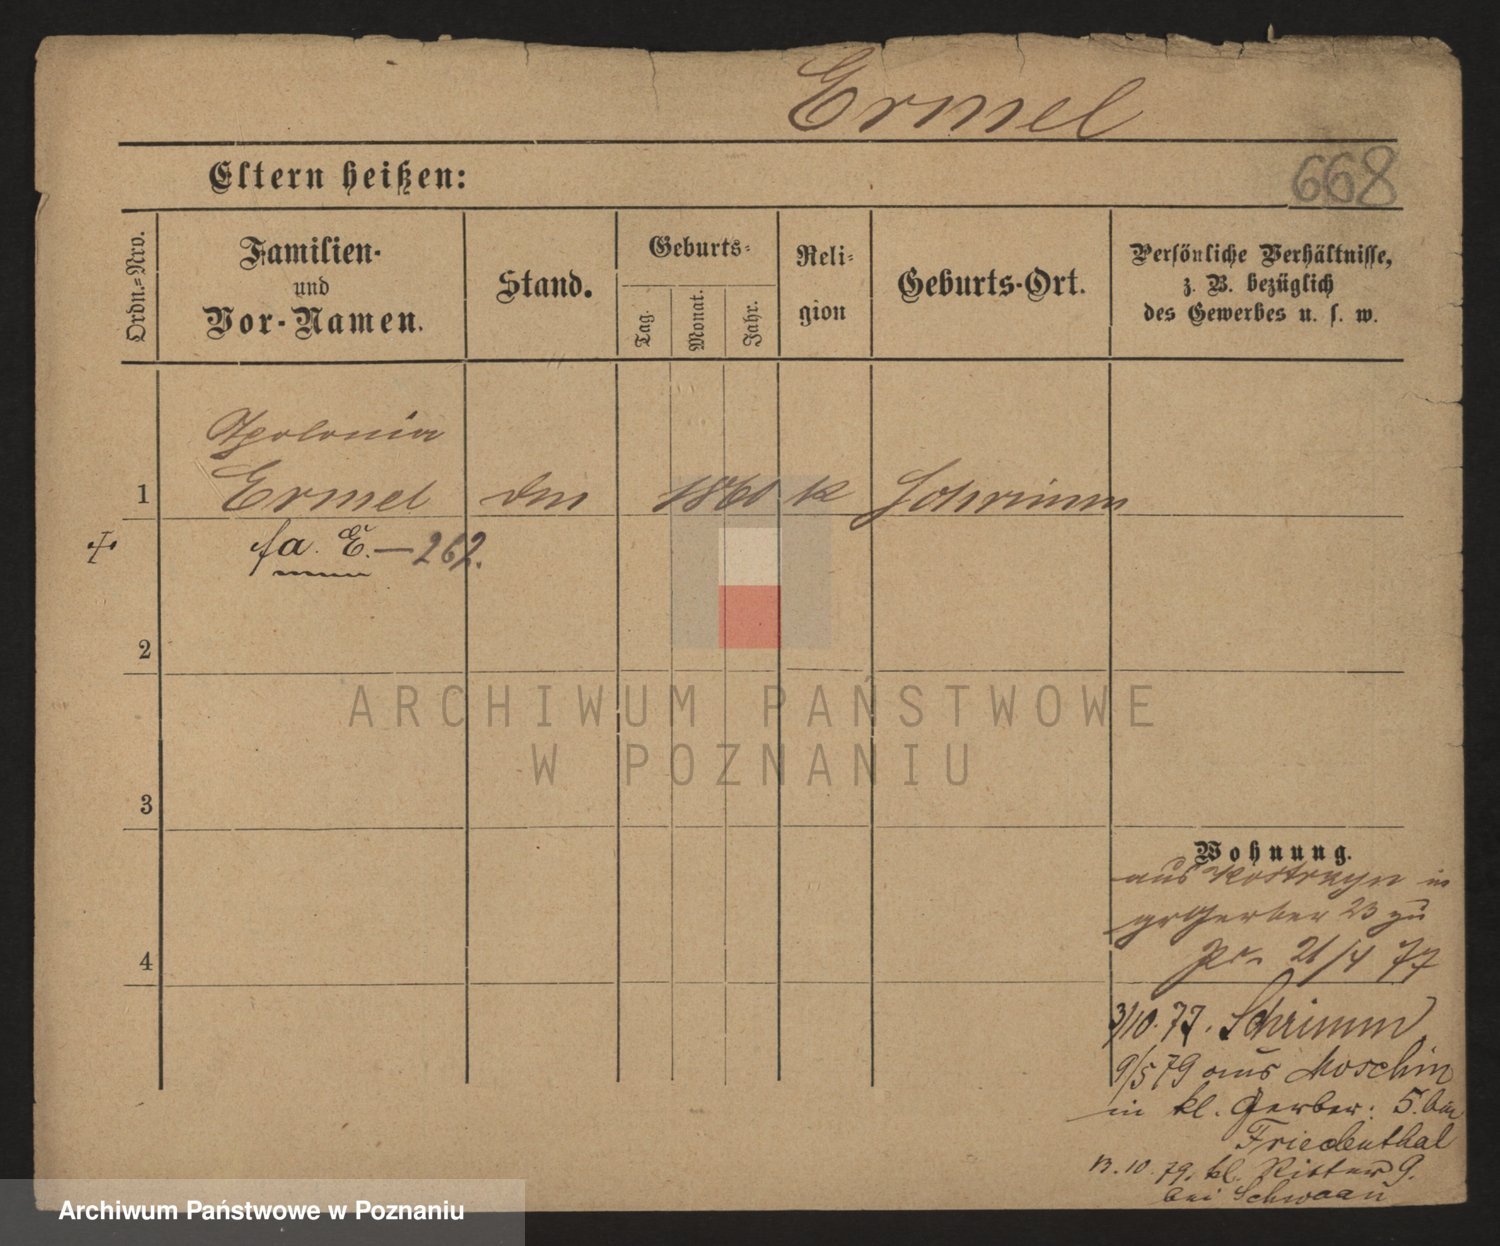 Ermel
Eltern heißen:
668
Ordn.-Nro.
Familien-
und
Vor-Namen.
Stand.
Geburts-
Tag.
Monat.
Jahr.
Reli-
gion
Geburts-Ort.
Persönliche Verhältnisse,
z. B. bezüglich
des Gewerbes u. s. w.
Apolonia
1 Ermel 1860 k Schrimm
fa. E. — 262.
2
ARCHIWUM PAŃSTWOWE
W POZNANIU
3
Wohnung.
aus Kostrzyn in
gr Gerber 23 zu
21/4 77
4
3/10. 77. Schrimm
9/5 79 aus Moschin
in kl. Gerber. 5. bei
Friedenthal
13.10.79. kl. Ritter 9.
bei Schwaan
Archiwum Państwowe w Poznaniu